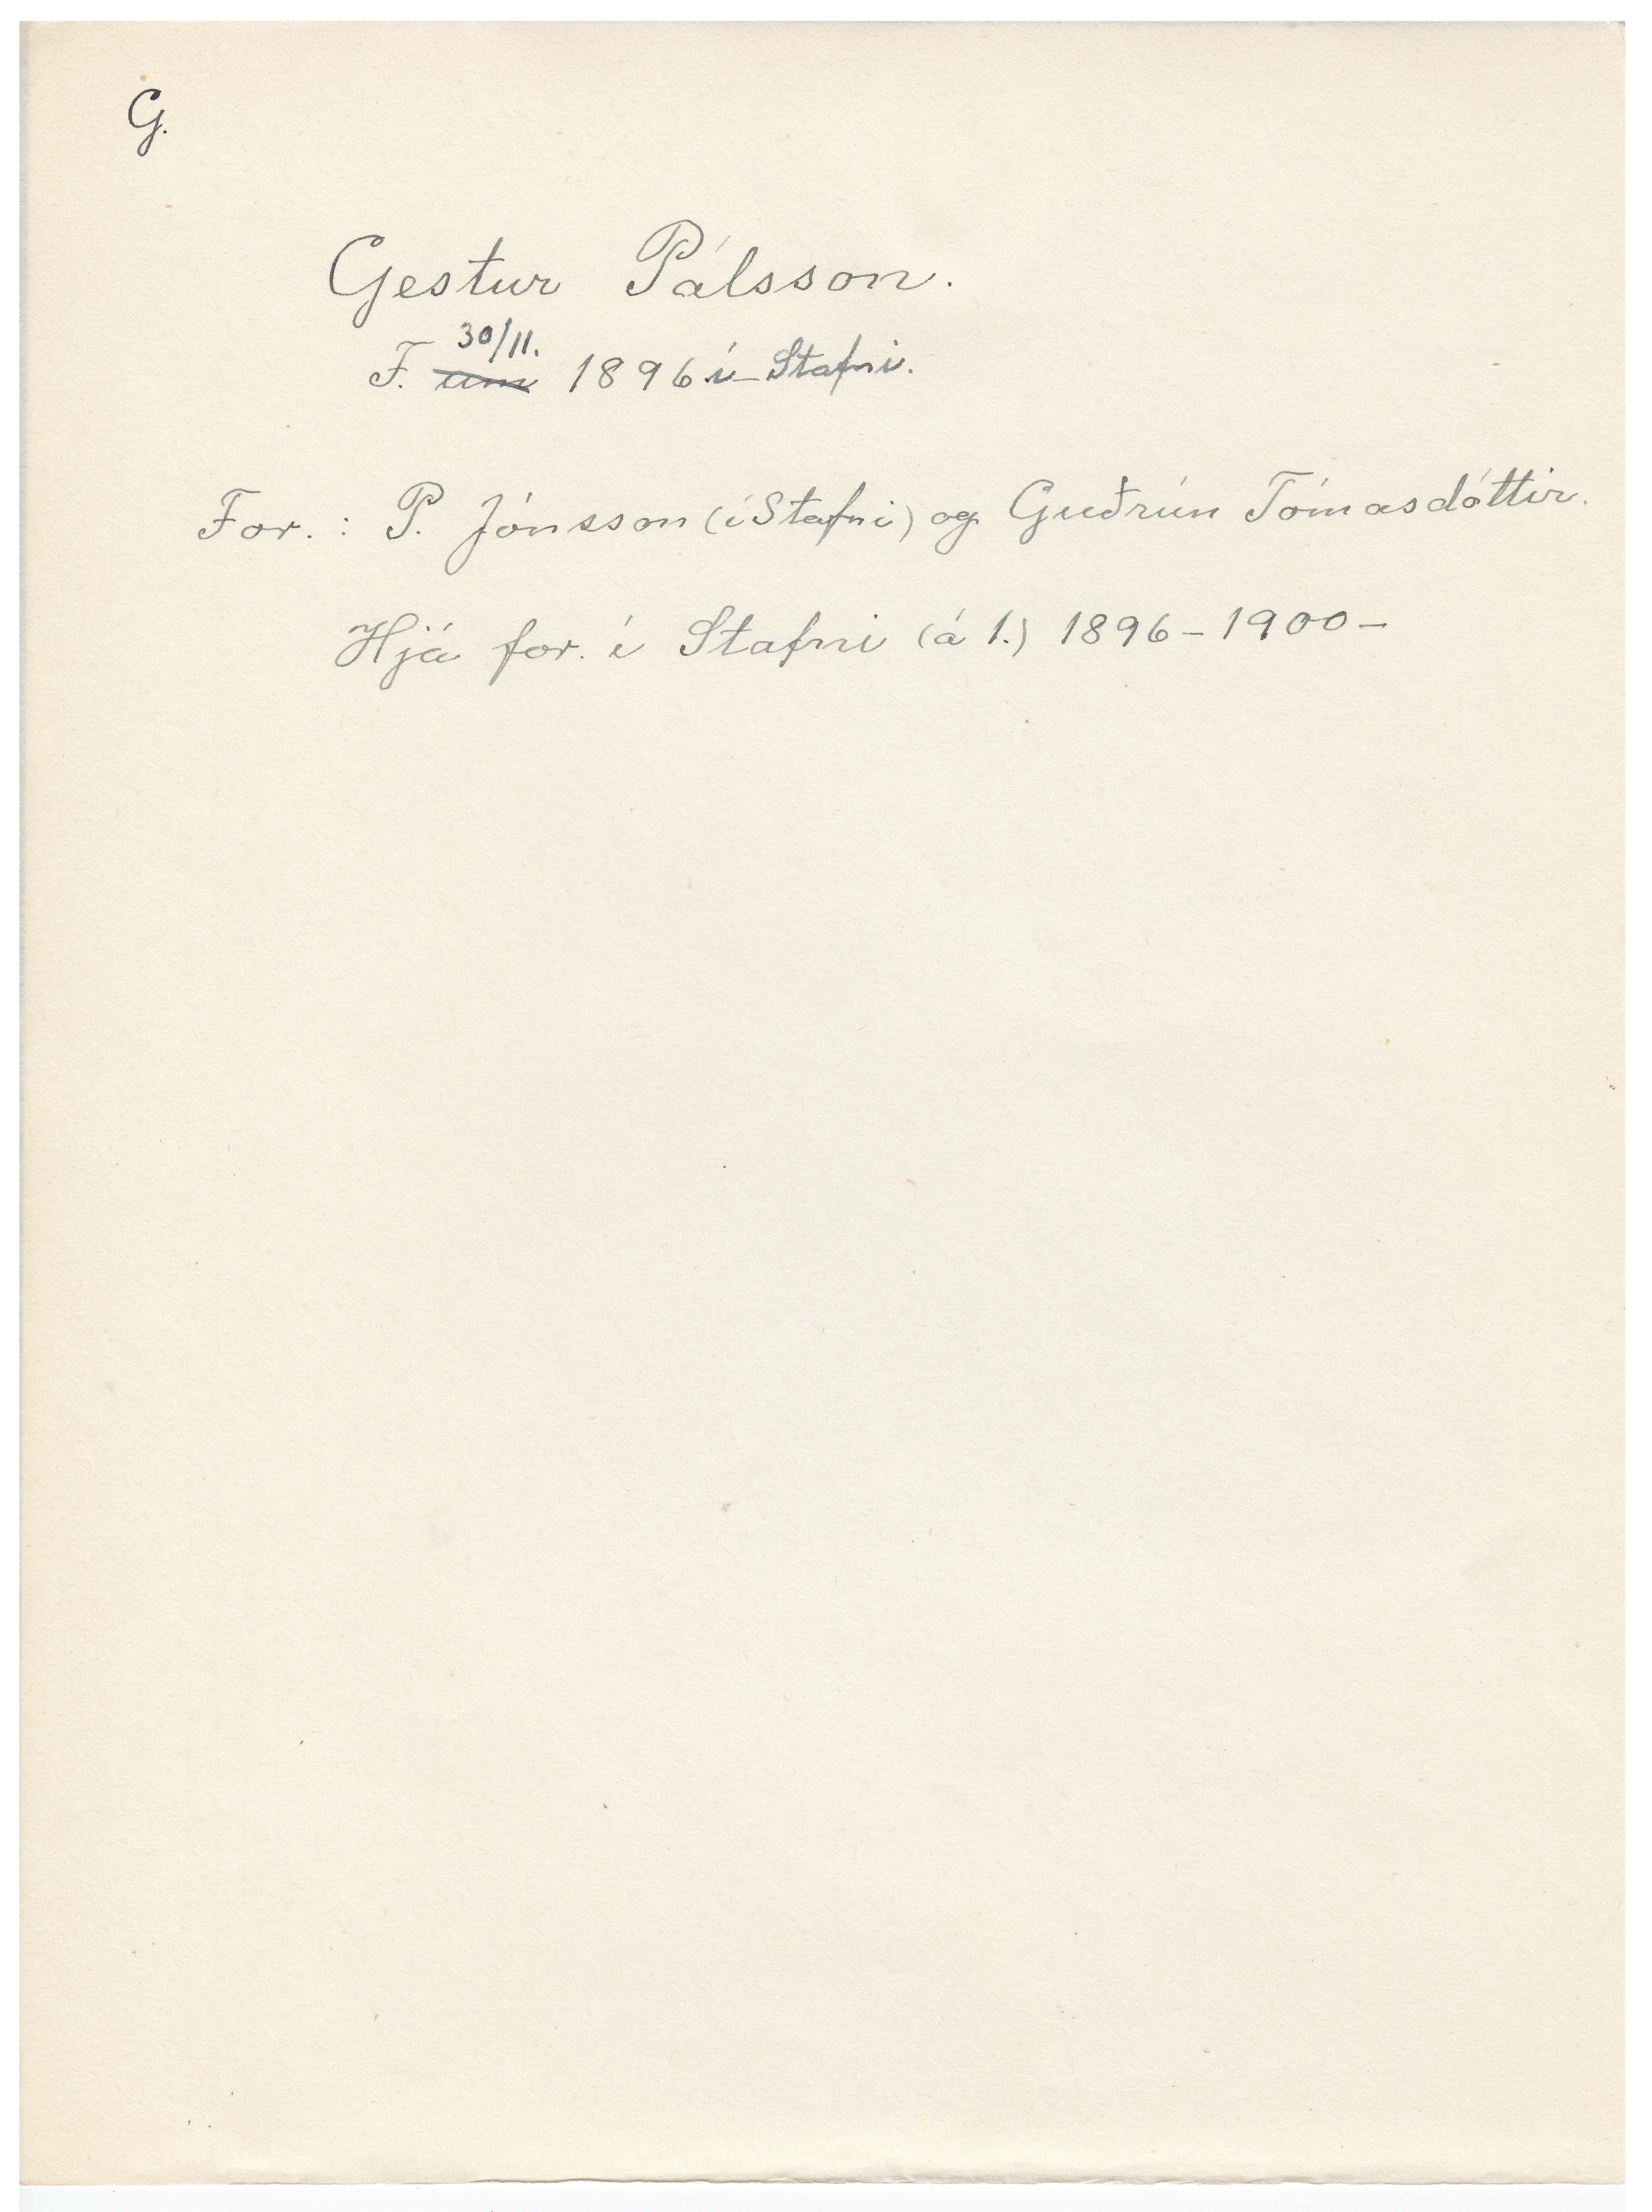 G.
Gestur Pálsson.
F. um 30/11. 1896 í Stafni.
For. : P. Jónsson (í Stafni) og Guðrún Tómasdóttir.
Hjá for. í Stafni (á 1.) 1896-1900-